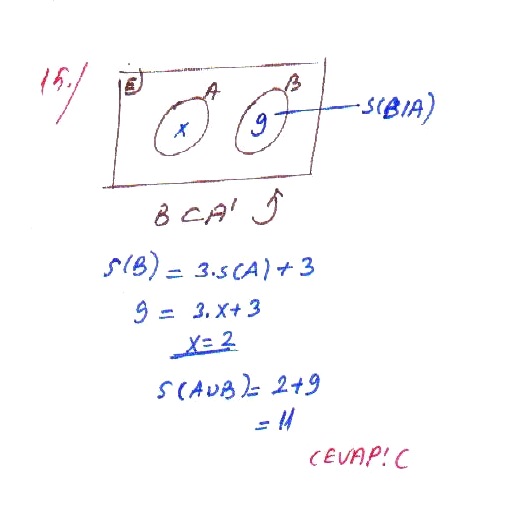 15./
E A B
x 9 S(B\A)
B ⊂ A'
S(B) = 3.S(A) + 3
9 = 3.x + 3
x = 2
S(A∪B) = 2+9
= 11
CEVAP: C